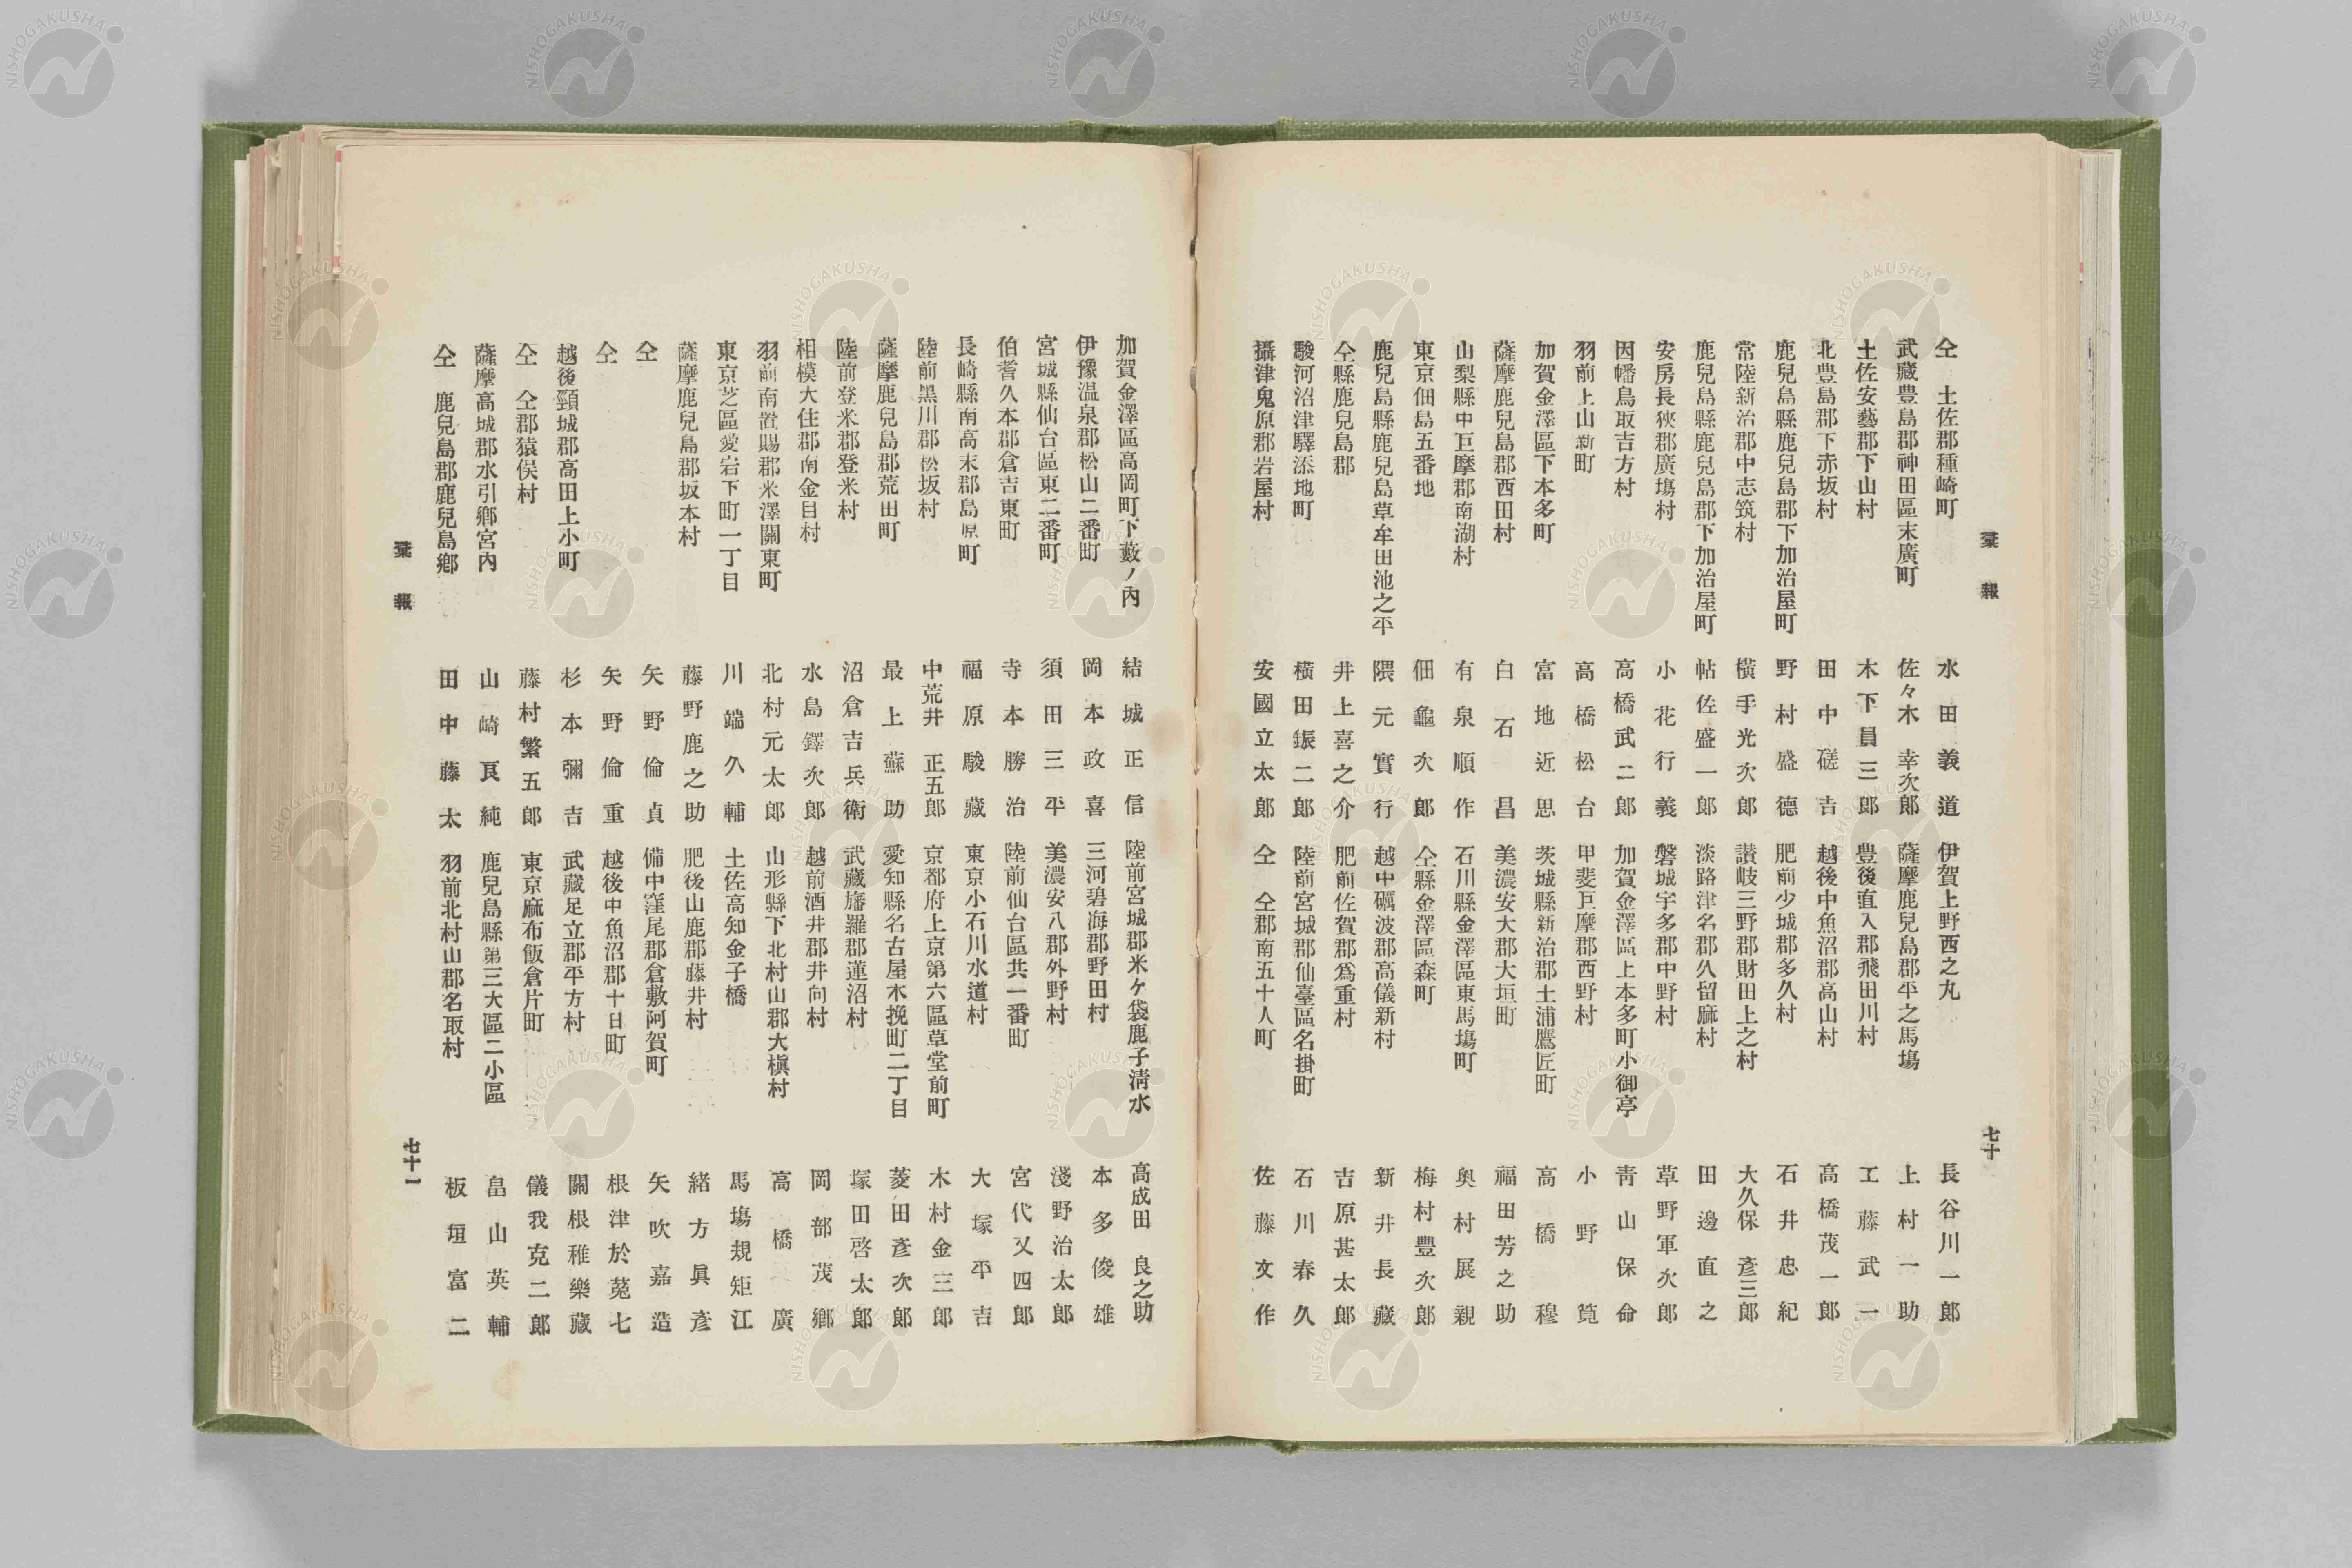 彙報
七十
仝　土佐郡種崎町　水田義道
武藏豊島郡神田區末廣町　佐々木幸次郎
土佐安藝郡下山村　木下員三郎
北豊島郡下赤坂村　田中磋吉
鹿兒島縣鹿兒島郡下加治屋町　野村盛德
常陸新治郡中志筑村　横手光次郎
鹿兒島縣鹿兒島郡下加治屋町　帖佐盛一郎
安房長狹郡廣塲村　小花行義
因幡鳥取吉方村　高橋武二郎
羽前上山新町　高橋松台
加賀金澤區下本多町　富地近思
薩摩鹿兒島郡西田村　白石昌
山梨縣中巨摩郡南湖村　有泉順作
東京佃島五番地　佃龜次郎
鹿兒島縣鹿兒島草牟田池之平　隈元實行
仝縣鹿兒島郡　井上喜之介
駿河沼津驛添地町　横田鋠二郎
攝津鬼原郡岩屋村　安國立太郎
伊賀上野西之丸　長谷川一郎
薩摩鹿兒島郡平之馬塲　上村一助
豊後直入郡飛田川村　工藤武一
越後中魚沼郡高山村　高橋茂一郎
肥前少城郡多久村　石井忠紀
讃岐三野郡財田上之村　大久保彦三郎
淡路津名郡久留麻村　田邊直之
磐城宇多郡中野村　草野軍次郎
加賀金澤區上本多町小御亭　靑山保命
甲斐巨摩郡西野村　小野筧
茨城縣新治郡土浦鷹匠町　高橋穆
美濃安大郡大垣町　福田芳之助
石川縣金澤區東馬塲町　奥村展親
仝縣金澤區森町　梅村豊次郎
越中礪波郡高儀新村　新井長藏
肥前佐賀郡爲重村　吉原甚太郎
陸前宮城郡仙臺區名掛町　石川春久
仝　仝郡南五十人町　佐藤文作
加賀金澤區高岡町下藪ノ內　結城正信
伊豫温泉郡松山二番町　岡本政喜
宮城縣仙台區東二番町　須田三平
伯耆久本郡倉吉東町　寺本勝治
長崎縣南高末郡島原町　福原駿藏
陸前黑川郡松坂村　中荒井正五郎
薩摩鹿兒島郡荒田町　最上蘇助
陸前登米郡登米村　沼倉吉兵衛
相模大住郡南金目村　水島鐸次郎
羽前南置賜郡米澤關東町　北村元太郎
東京芝區愛宕下町一丁目　川端久輔
薩摩鹿兒島郡坂本村　藤野鹿之助
仝　矢野倫貞
仝　矢野倫重
越後頸城郡高田上小町　杉本彌吉
仝　仝郡猿俣村　藤村繁五郎
薩摩高城郡水引鄕宮內　山崎良純
仝　鹿兒島郡鹿兒島鄕　田中藤太
陸前宮城郡米ケ袋鹿子淸水　高成田良之助
三河碧海郡野田村　本多俊雄
美濃安八郡外野村　淺野治太郎
陸前仙台區共一番町　宮代又四郎
東京小石川水道村　大塚平吉
京都府上京第六區草堂前町　木村金三郎
愛知縣名古屋木挽町二丁目　菱田彥次郎
武藏旛羅郡蓮沼村　塚田啓太郎
越前酒井郡井向村　岡部茂鄕
山形縣下北村山郡大槇村　高橋廣
土佐高知金子橋　馬塲規矩江
肥後山鹿郡藤井村　緒方眞彥
備中窪尾郡倉敷阿賀町　矢吹嘉造
越後中魚沼郡十日町　根津於菟七
武藏足立郡平方村　關根稚樂藏
東京麻布飯倉片町　儀我克二郎
鹿兒島縣第三大區二小區　畠山英輔
羽前北村山郡名取村　板垣富二
彙報
七十一